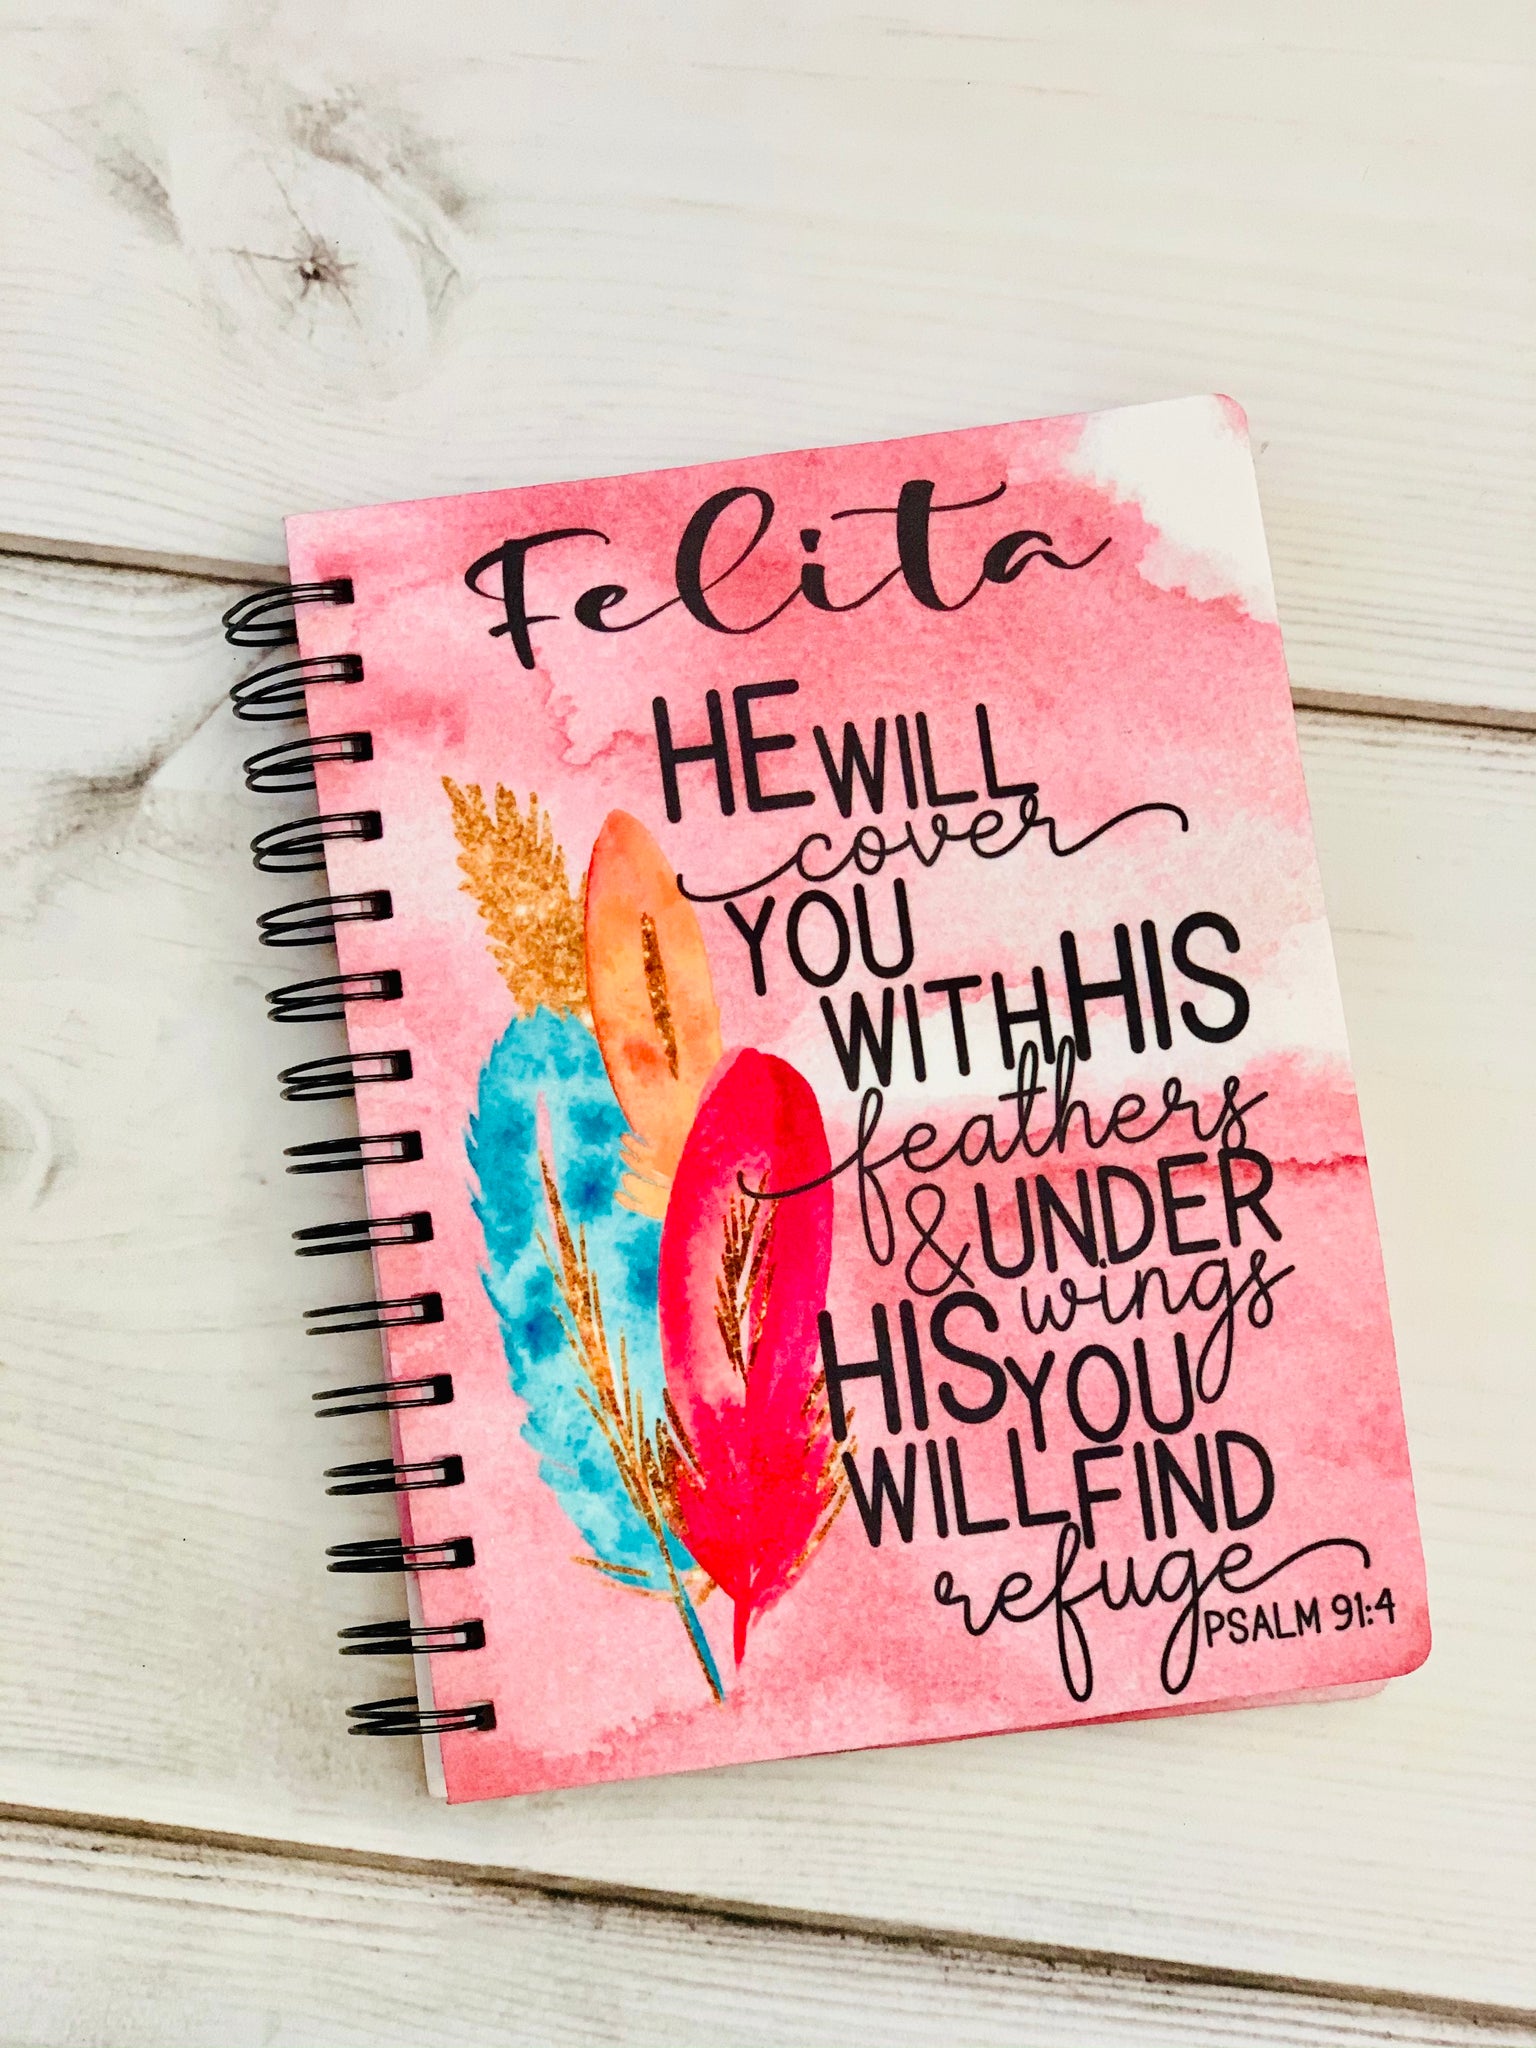 Felita
HE WILL
cover
YOU
WITH HIS
feathers
& UNDER
HIS wings
YOU
WILL FIND
refuge
PSALM 91:4